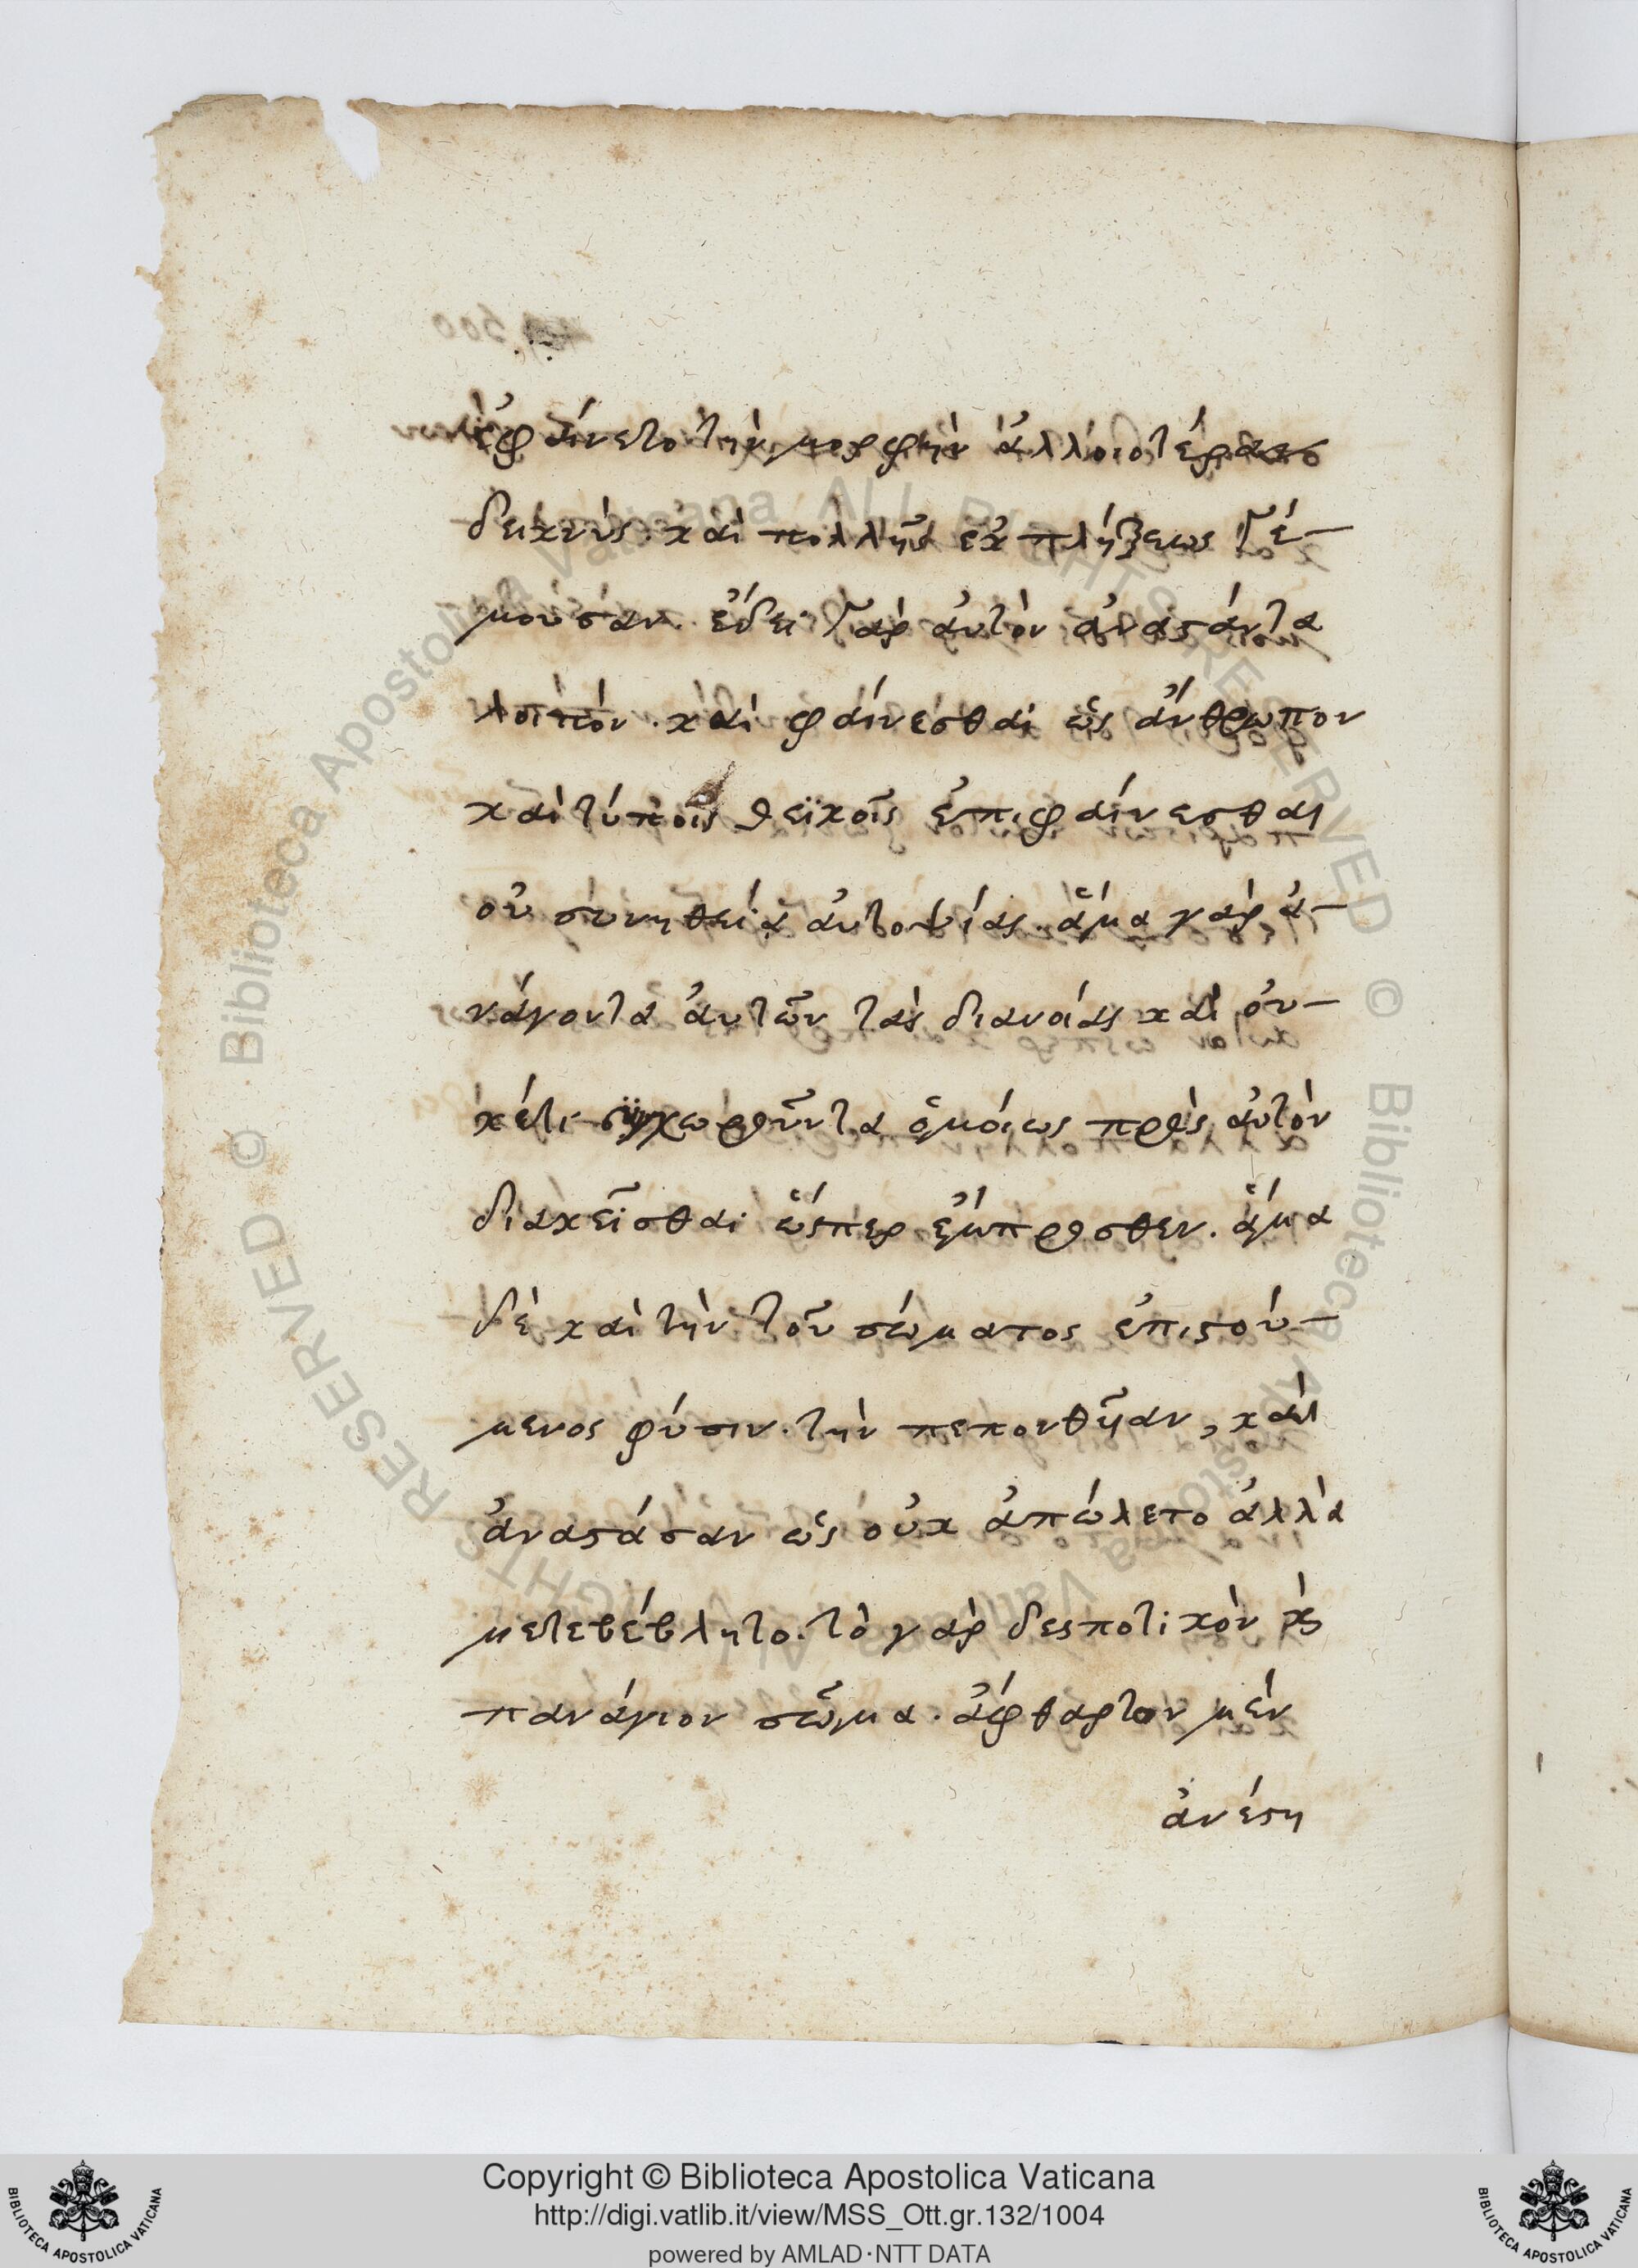 ἐφαίνετο τὴν μορφὴν ἀλλοιοτέρως
δεικνὺς· καὶ πολλῆς ἐκπλήξεως γέ-
μουσαν. ἔδει γὰρ αὐτὸν ἀναστάντα
λοιπόν. καὶ φαίνεσθαι ὡς ἄνθρωπον
καὶ τύποις θεϊκοῖς ἐπιφαίνεσθαι
οὐ συνηθεία αὐτοψίας. ἅμα γὰρ ἀ-
νάγοντα αὐτῶν τὰς διανοίας καὶ οὐ-
κέτι συγχωροῦντα ὁμοίως πρὸς αὐτὸν
διακεῖσθαι ὥσπερ ἔμπροσθεν. ἅμα
δὲ καὶ τὴν τοῦ σώματος ἐπιστού-
μενος φύσιν· τὴν πεπονθῆαν, καὶ
ἀναστάσαν ὡς οὐκ ἀπώλετο ἀλλὰ
μετεβέβλητο. τὸ γὰρ δεσποτικὸν κ̀
πανάγιον σῶμα. ἄφθαρτον μὲν
ἀνέστη
Copyright © Biblioteca Apostolica Vaticana
http://digi.vatlib.it/view/MSS_Ott.gr.132/1004
powered by AMLAD·NTT DATA
BIBLIOTECA APOSTOLICA VATICANA
BIBLIOTECA APOSTOLICA VATICANA